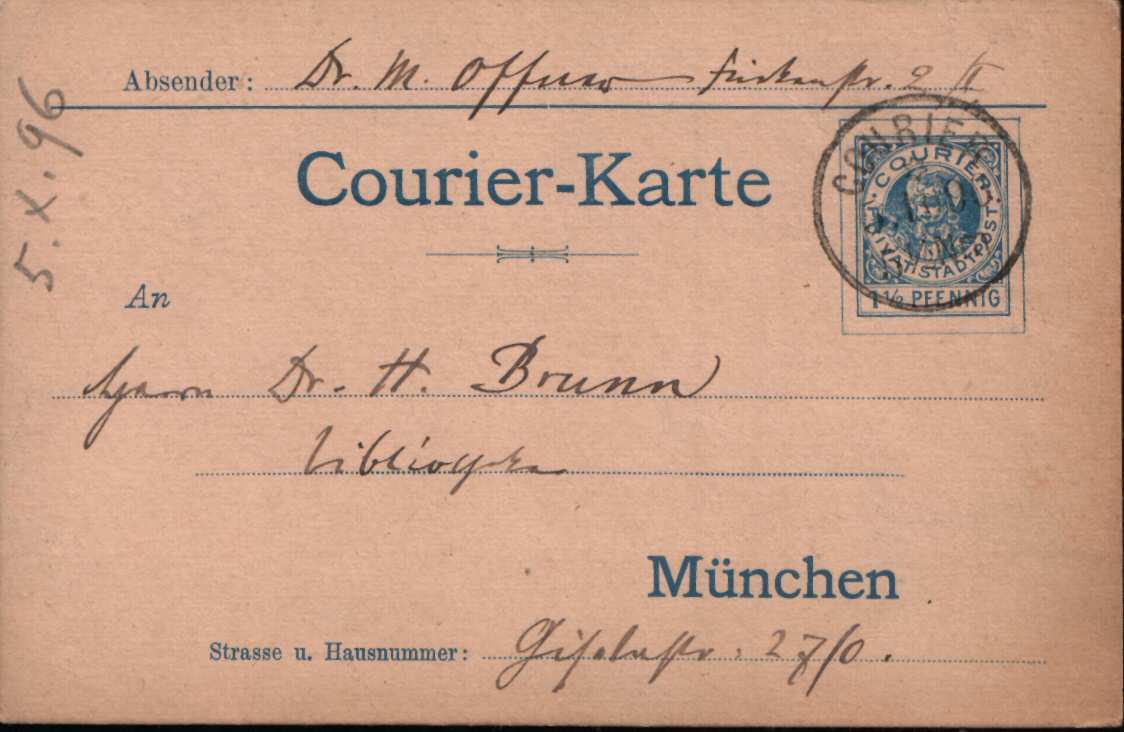 Absender: Dr. M. Offner 2/II
5. X. 96
Courier-Karte
COURIER
COURIER
PRIVAT-STADTPOST
1 1/2 PFENNIG
An
Herrn Dr. H. Brunn
München
Strasse u. Hausnummer: Giselastr. 27/0.